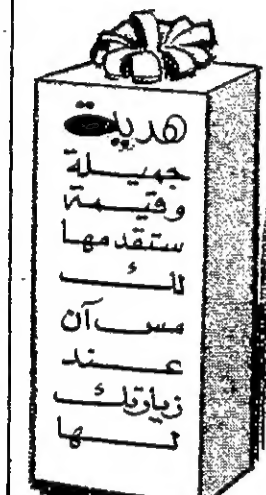 هدية
جميلة
وقيمة
ستقدمها
لك
مس آن
عند
زيارتك
لها